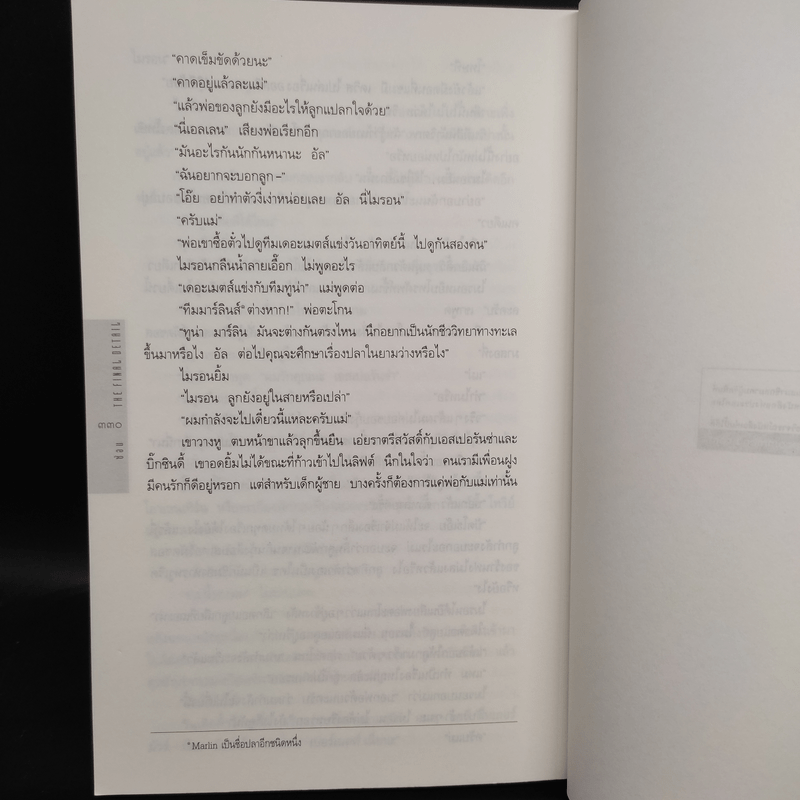 "คาดเข็มขัดด้วยนะ"
"คาดอยู่แล้วละแม่"
"แล้วพ่อของลูกยังมีอะไรให้ลูกแปลกใจด้วย"
"นี่เอลเลน" เสียงพ่อเรียกอีก
"มันอะไรกันนักกันหนานะ อัล"
"ฉันอยากจะบอกลูก–"
"โอ๊ย อย่าทำตัวงี่เง่าหน่อยเลย อัล นี่ไมรอน"
"ครับแม่"
"พ่อเขาซื้อตั๋วไปดูทีมเดอะเมตส์แข่งวันอาทิตย์นี้ ไปดูกันสองคน"
ไมรอนกลืนน้ำลายเอื๊อก ไม่พูดอะไร
"เดอะเมตส์แข่งกับทีมทูน่า" แม่พูดต่อ
"ทีมมาร์ลินส์*ต่างหาก!" พ่อตะโกน
"ทูน่า มาร์ลิน มันจะต่างกันตรงไหน นึกอยากเป็นนักชีววิทยาทางทะเล
ขึ้นมาหรือไง อัล ต่อไปคุณจะศึกษาเรื่องปลาในยามว่างหรือไง"
ไมรอนยิ้ม
"ไมรอน ลูกยังอยู่ในสายหรือเปล่า"
"ผมกำลังจะไปเดี๋ยวนี้แหละครับแม่"
เขาวางหู ตบหน้าขาแล้วลุกขึ้นยืน เอ่ยราตรีสวัสดิ์กับเอสเปอรันซ่าและ
บิ๊กซินดี้ เขาอดยิ้มไม่ได้ขณะที่ก้าวเข้าไปในลิฟต์ นึกในใจว่า คนเรามีเพื่อนฝูง
มีคนรักก็ดีอยู่หรอก แต่สำหรับเด็กผู้ชาย บางครั้งก็ต้องการแค่พ่อกับแม่เท่านั้น
THE FINAL DETAIL
๓๓๐
*Marlin เป็นชื่อปลาอีกชนิดหนึ่ง